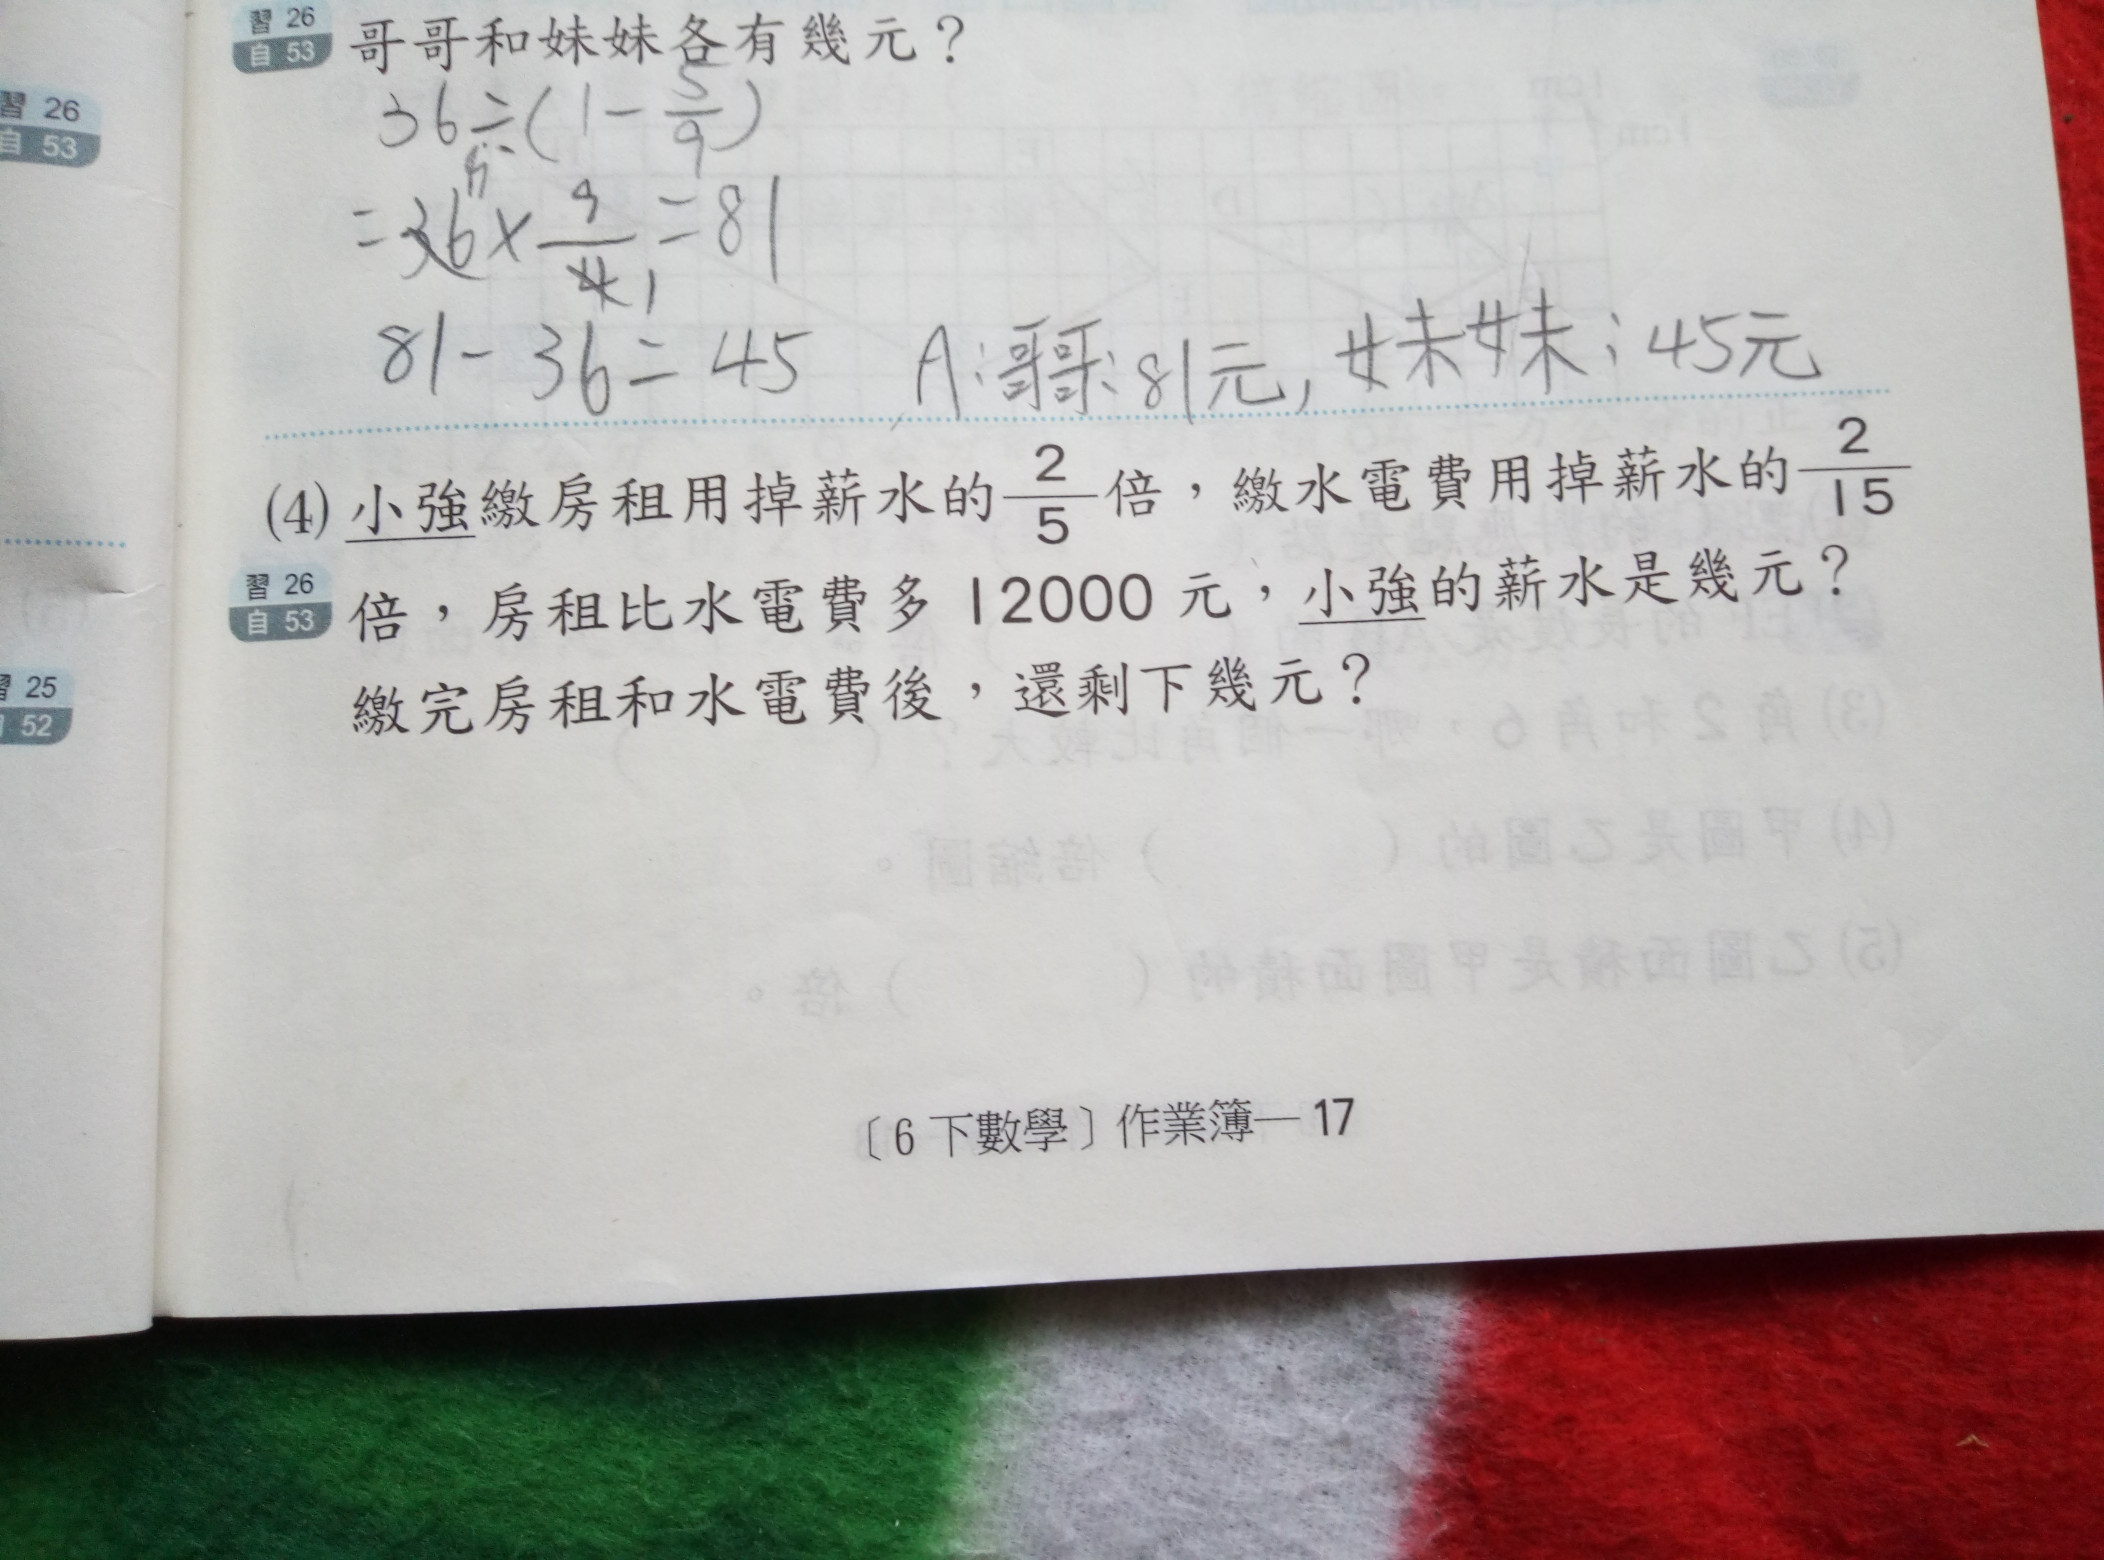 習 26
自 53
哥哥和妹妹各有幾元？
習 26
自 53
36÷(1-5/9)
9
=36×9/4 1=81
81-36=45 A:哥哥:81元,妹妹:45元
(4) 小強繳房租用掉薪水的2/5倍，繳水電費用掉薪水的2/15
習 26
自 53
倍，房租比水電費多12000元，小強的薪水是幾元？
繳完房租和水電費後，還剩下幾元？
習 25
52
〔6下數學〕作業簿—17